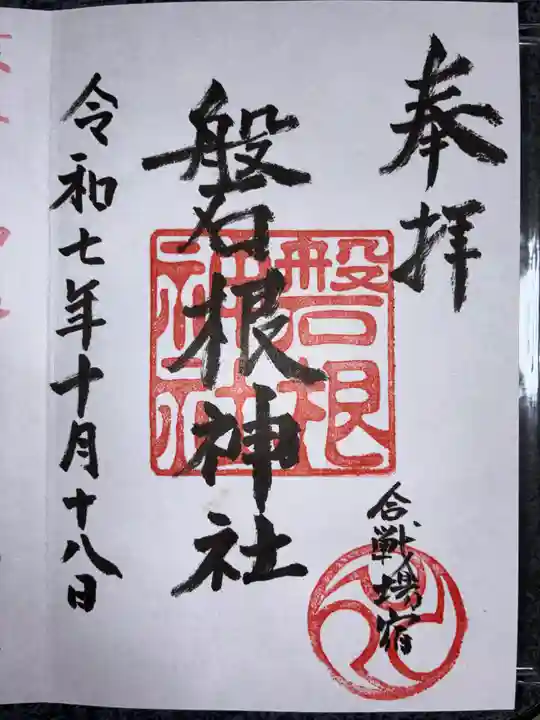 奉拝
合戦場宿
磐根神社
磐根
神社
令和七年十月十八日